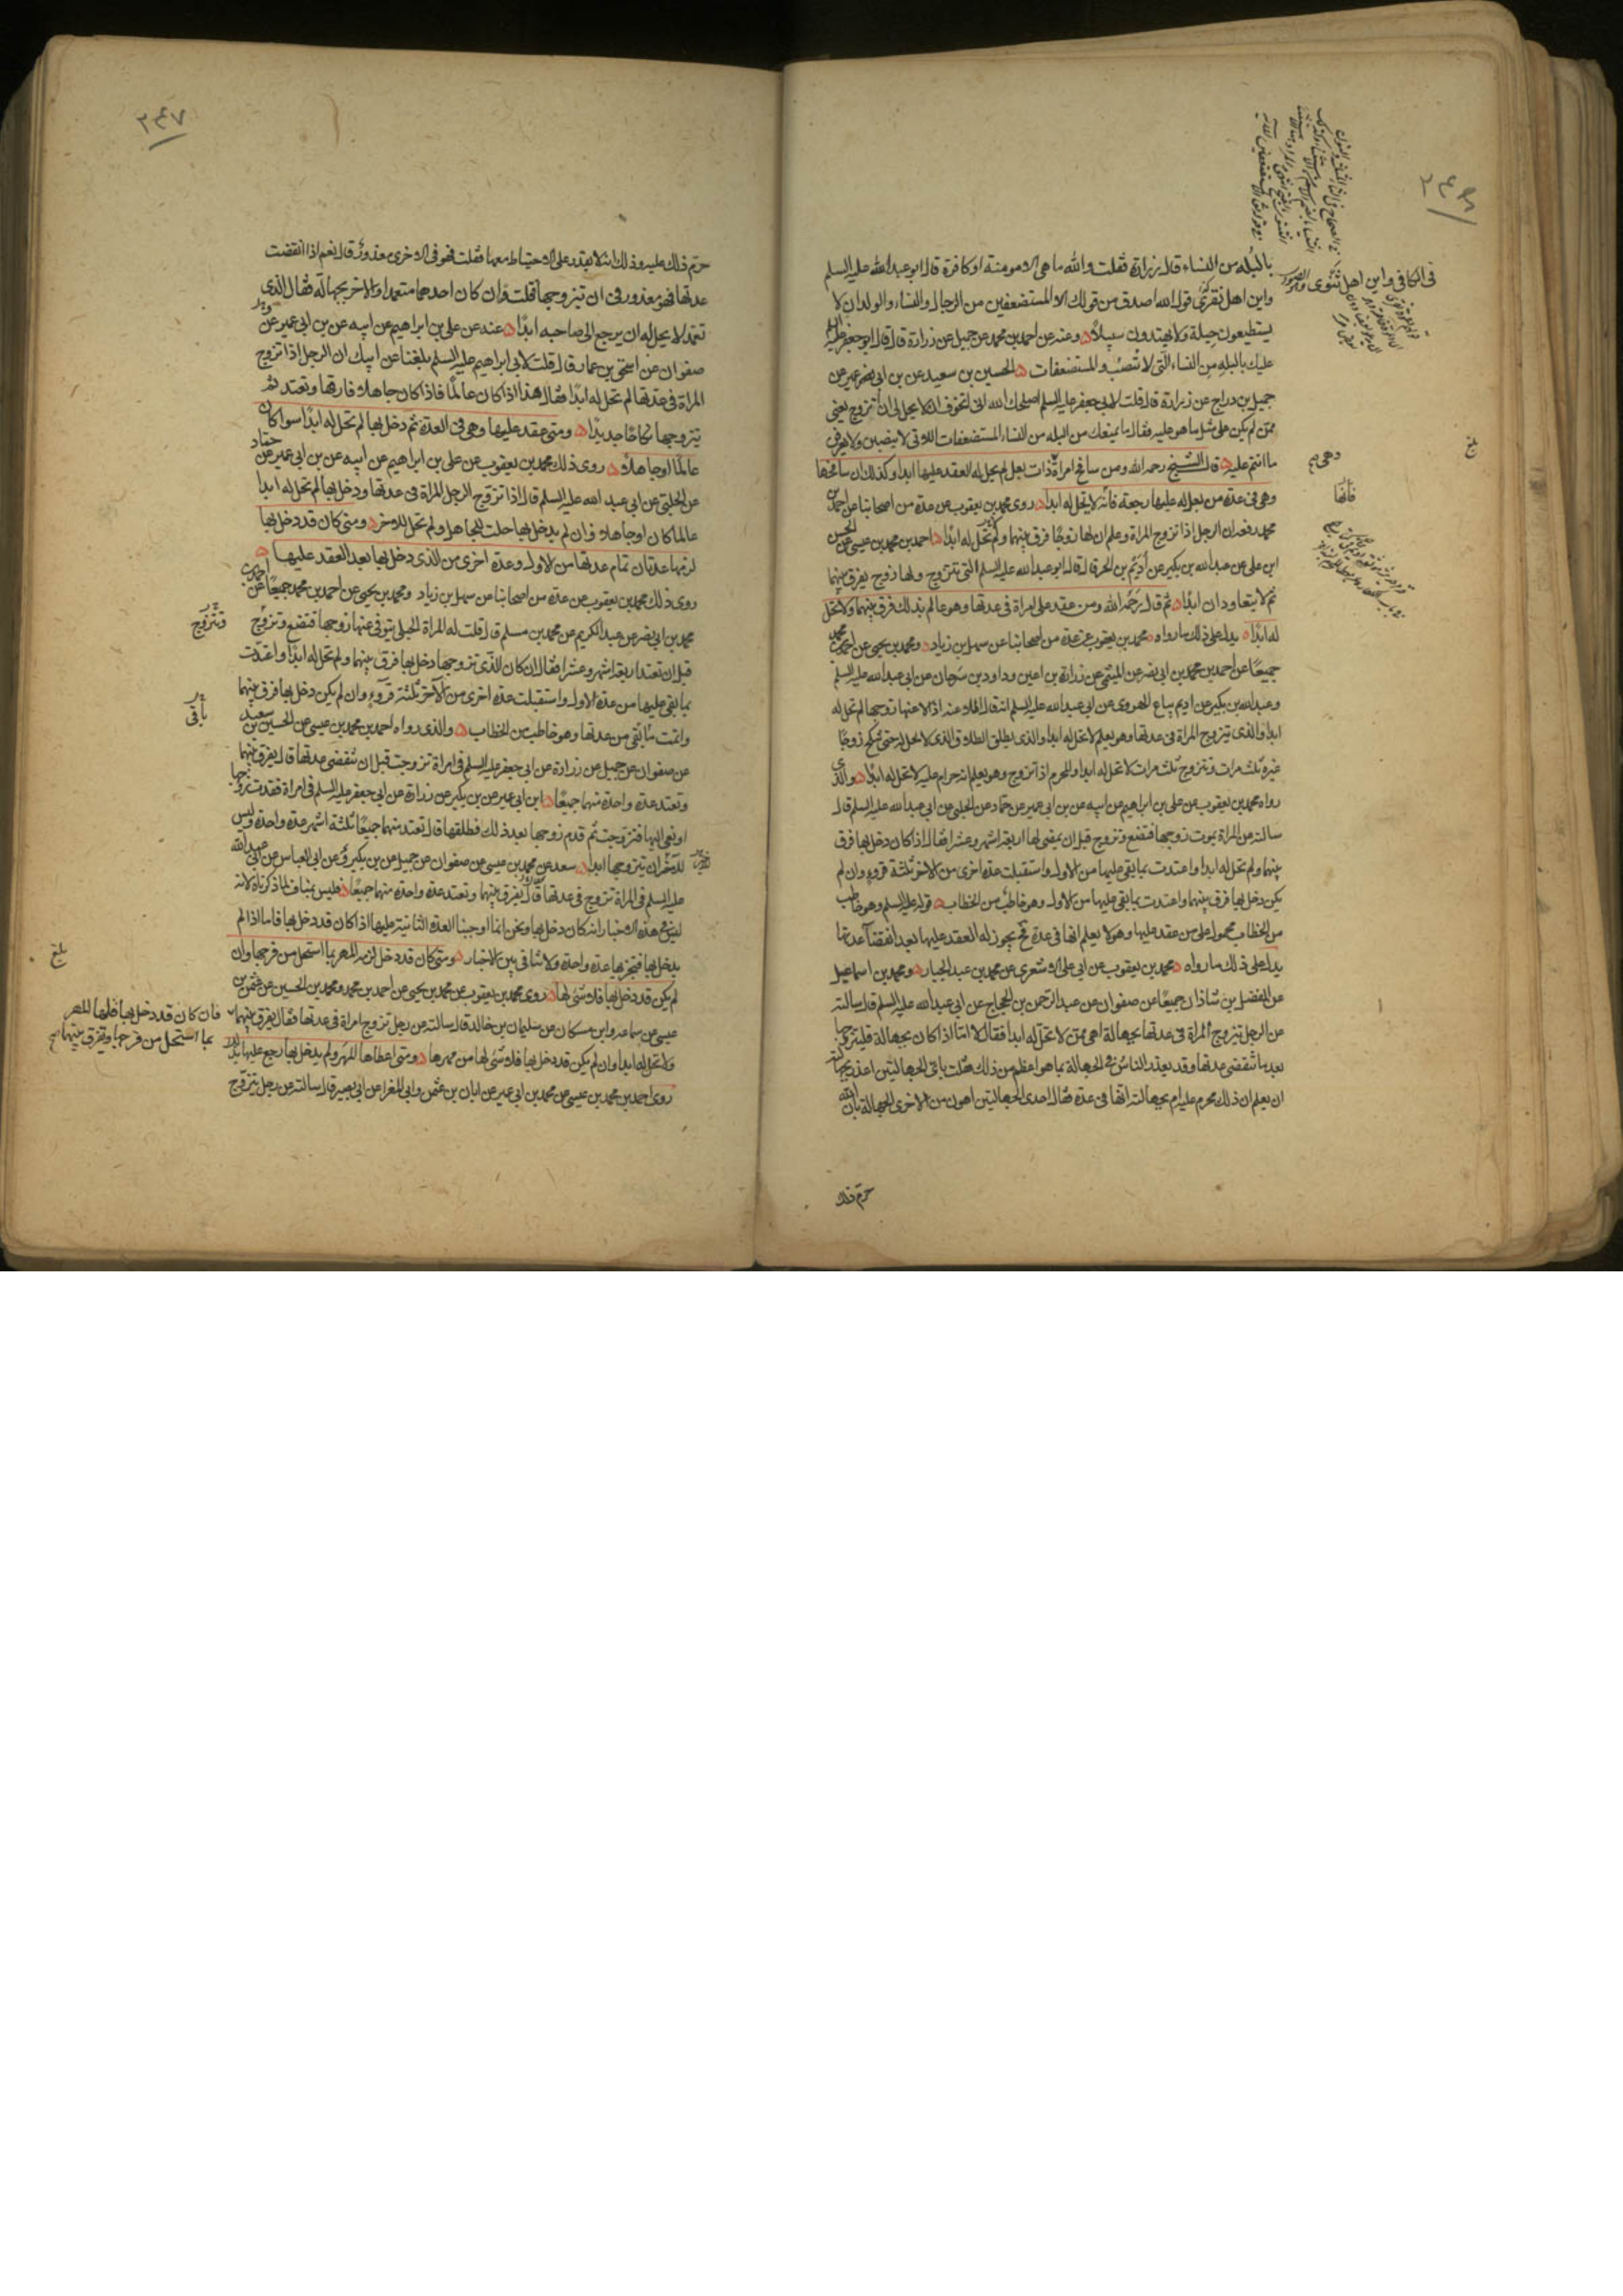 بالبله من النساء قال زرارة فقلت والله ما هى الا مومنة او كافرة قال ابو عبد الله عليه السلم
واين اهل تقوى قول الله اصدق من قولك الا المستضعفين من الرجال والنساء والولدان لا
يستطيعون حيلة ولا يهتدون سبيلا وعنه عن احمد بن محمد عن جميل عن زرارة قال قال ابو جعفر عليه السلم
عليك بالبله من النساء التى لا تنصب والمستضعفات الحسين بن سعيد عن بن ابى عمير عن
جميل بن دراج عن زرارة قال قلت لابى جعفر عليه السلم اصلحك الله انى اتخوف ان لا يحل لى ان اتزوج يعنى
ممن لم يكن على مثل ما هو عليه فقال ما يمنعك من البله من النساء المستضعفات اللاتى لا ينصبن ولا يعرفن
ما انتم عليه قال الشيخ رحمه الله ومن سافح امراة ذات بعل لم يحل له العقد عليها ابدا وكذلك ان سافحها
وهى فى عدة من بعل له عليها رجعة فانه لا يحل له ابدا روى محمد بن يعقوب عن عدة من اصحابنا عن احمد بن
محمد رفعه ان الرجل اذا تزوج المراة وعلم ان لها زوجا فرق بينهما ولم تحل له ابدا احمد بن محمد بن عيسى عن الحسن
ابن على عن عبد الله بن بكير عن اديم بن الحر قال قال ابو عبد الله عليه السلم التى تتزوج ولها زوج يفرق بينهما
ثم لا يتعاودان ابدا ثم قال رحمه الله ومن عقد على امراة فى عدتها وهو عالم بذلك فرق بينهما ولا تحل
له ابدا يدل على ذلك ما رواه محمد بن يعقوب عن عدة من اصحابنا عن سهل بن زياد ومحمد بن يحيى عن احمد بن محمد
جميعا عن احمد بن محمد بن ابى نصر عن المثنى عن زرارة بن اعين وداود بن سرحان عن ابى عبد الله عليه السلم
وعبد الله بن بكير عن اديم بياع الهروى عن ابى عبد الله عليه السلم انه قال الملاعنة اذا لاعنها زوجها لم تحل له
ابدا والذى يتزوج المراة فى عدتها وهو يعلم لا تحل له ابدا والذى يطلق الطلاق الذى لا تحل له حتى تنكح زوجا
غيره ثلث مرات وتزوج ثلث مرات لا تحل له ابدا والمحرم اذا تزوج وهو يعلم انه حرام عليه لا تحل له ابدا والذى
رواه محمد بن يعقوب عن على بن ابراهيم عن ابيه عن بن ابى عمير عن حماد عن الحلبى عن ابى عبد الله عليه السلم قال
سالته عن المراة يموت زوجها فتضع وتزوج قبل ان يمضى لها اربعة اشهر وعشرا فقال اذا كان دخل بها فرق
بينهما ولم تحل له ابدا واعتدت بما بقى عليها من الاول واستقبلت عدة اخرى من الاخر ثلثة قروء وان لم
يكن دخل بها فرق بينهما واعتدت بما بقى عليها من الاول وهو خاطب من الخطاب قوله عليه السلم وهو خاطب
من الخطاب محمول على من عقد عليها وهو لا يعلم انها فى عدة فح يجوز له العقد عليها بعد انقضآ عدتها
يدل على ذلك ما رواه محمد بن يعقوب عن ابى على الاشعرى عن محمد بن عبد الجبار ومحمد بن اسماعيل
عن الفضل بن شاذان جميعا عن صفوان عن عبد الرحمن بن الحجاج عن ابى عبد الله عليه السلم قال سالته
عن الرجل يتزوج المراة فى عدتها بجهالة اهى ممن لا تحل له ابدا فقال لا اما اذا كان بجهالة فليتزوجها
بعد ما تنقضى عدتها وقد يعذر الناس فى الجهالة بما هو اعظم من ذلك فقلت باى الجهالتين اعذر بجهالته
ان يعلم ان ذلك محرم عليه ام بجهالته انها فى عدة فقال احدى الجهالتين اهون من الاخرى الجهالة بان الله
حرم ذلك
فى الكافى واين اهل ثنوى
وهى صح
فانها
بلغ
٢٤٦
٢٤٧
حرم ذلك عليه وذلك انه لا يقدر على الاحتياط معها فقلت فهو فى الاخرى معذور قال نعم اذا انقضت
عدتها فهو معذور فى ان يتزوجها قلت وان كان احدهما متعمدا والاخر بجهالة فقال الذى
تعمد لا يحل له ان يرجع الى صاحبه ابدا عنه عن على بن ابراهيم عن ابيه عن بن ابى عمير عن
صفوان عن اسحق بن عمار قال قلت لابى ابراهيم عليه السلم بلغنا عن ابيك ان الرجل اذا تزوج
المراة فى عدتها لم تحل له ابدا فقال هذا اذا كان عالما فاذا كان جاهلا فارقها وتعتد ثم
يتزوجها نكاحا جديدا ومتى عقد عليها وهى فى العدة ثم دخل بها لم تحل له ابدا سوا كان
عالما او جاهلا روى ذلك محمد بن يعقوب عن على بن ابراهيم عن ابيه عن بن ابى عمير عن حماد
عن الحلبى عن ابى عبد الله عليه السلم قال اذا تزوج الرجل المراة فى عدتها ودخل بها لم تحل له ابدا
عالما كان او جاهلا وان لم يدخل بها حلت للجاهل ولم تحل للاخر ومتى كان قد دخل بها
لزمها عدتان تمام عدتها من الاول وعدة اخرى من الذى دخل بها بعد العقد عليها
روى ذلك محمد بن يعقوب عن عدة من اصحابنا عن سهل بن زياد ومحمد بن يحيى عن احمد بن محمد جميعا عن احمد بن
محمد بن ابى نصر عن عبد الكريم عن محمد بن مسلم قال قلت له المراة الحبلى يتوفى عنها زوجها فتضع وتزوج
قبل ان تعتد اربعة اشهر وعشرا فقال ان كان الذى تزوجها دخل بها فرق بينهما ولم تحل له ابدا واعتدت
بما بقى عليها من عدة الاول واستقبلت عدة اخرى من الآخر ثلثة قروء وان لم يكن دخل بها فرق بينهما
واتمت ما بقى من عدتها وهو خاطب من الخطاب والذى رواه احمد بن محمد بن عيسى عن الحسين بن سعيد
عن صفوان عن جميل عن زرارة عن ابى جعفر عليه السلم فى امراة تزوجت قبل ان تنقضى عدتها قال يفرق بينهما
وتعتد عدة واحدة منهما جميعا ابن ابى عمير عن بن بكير عن زرارة عن ابى جعفر عليه السلم فى امراة فقدت زوجها
او نعى اليها فتزوجت ثم قدم زوجها بعد ذلك فطلقها قال تعتد منهما جميعا ثلثة اشهر عدة واحدة وليس
للآخر ان يتزوجها ابدا سعد عن محمد بن عيسى عن صفوان عن جميل عن بن بكير عن ابى العباس عن ابى عبد الله
عليه السلم فى المراة تزوج فى عدتها قال يفرق بينهما وتعتد عدة واحدة منهما جميعا فليس بمناف لما ذكرناه لانه
ليس فى هذه الاخبار انه كان دخل بها ونحن انما اوجبنا العدة الثانية عليها اذا كان قد دخل بها فاما اذا لم
يدخل بها فتجزيها عدة واحدة ولا تنافى بين الاخبار ومتى كان قد دخل لزمه المهر بما استحل من فرجها وان
لم يكن قد دخل بها فلا شئ لها روى محمد بن يعقوب عن محمد بن يحيى عن احمد بن محمد ومحمد بن الحسين عن عثمن بن
عيسى عن سماعة وابن مسكان عن سليمان بن خالد قال سالته عن رجل تزوج امراة فى عدتها فقال يفرق بينهما
ولا تحل له ابدا وان لم يكن قد دخل بها فلا شئ لها من مهرها ومتى اعطاها المهر ولم يدخل بها رجع عليها بذلك
روى احمد بن محمد بن عيسى عن محمد بن ابى عمير عن ابان بن عثمن وابى المغرا عن ابى بصير قال سالته عن رجل يتزوج
وتتزوج
باقى
بلغ
فان كان قد دخل بها فلها المهر
بما استحل من فرجها ويفرق بينهما صح